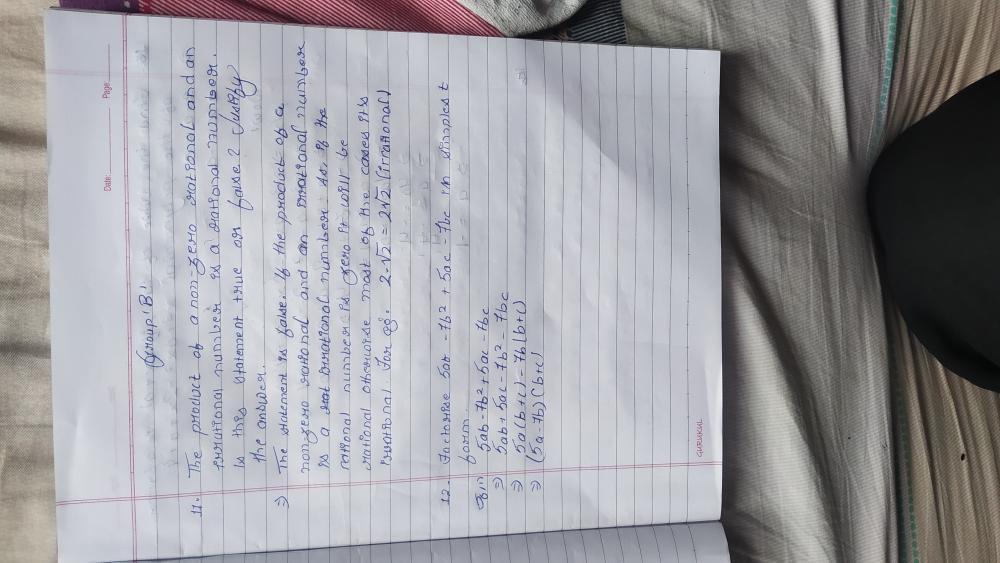 Date: Page:
Group 'B'
11. The product of a non-zero rational and an
irrational number is a rational number.
Is this statement true or false? Justify
the answer.
⇒ The statement is false. If the product of a
non-zero rational and an irrational number
is a irrational number. As if the
rational number is zero it will be
rational otherwise most of the cases it is
irrational. For eg. 2·√2 = 2√2 (irrational)
12. Factorise 5ab - 7b² + 5ac - 7bc in simplest
form.
5ab - 7b² + 5ac - 7bc
⇒ 5ab + 5ac - 7b² - 7bc
⇒ 5a(b+c) - 7b(b+c)
⇒ (5a-7b)(b+c)
GURUKUL